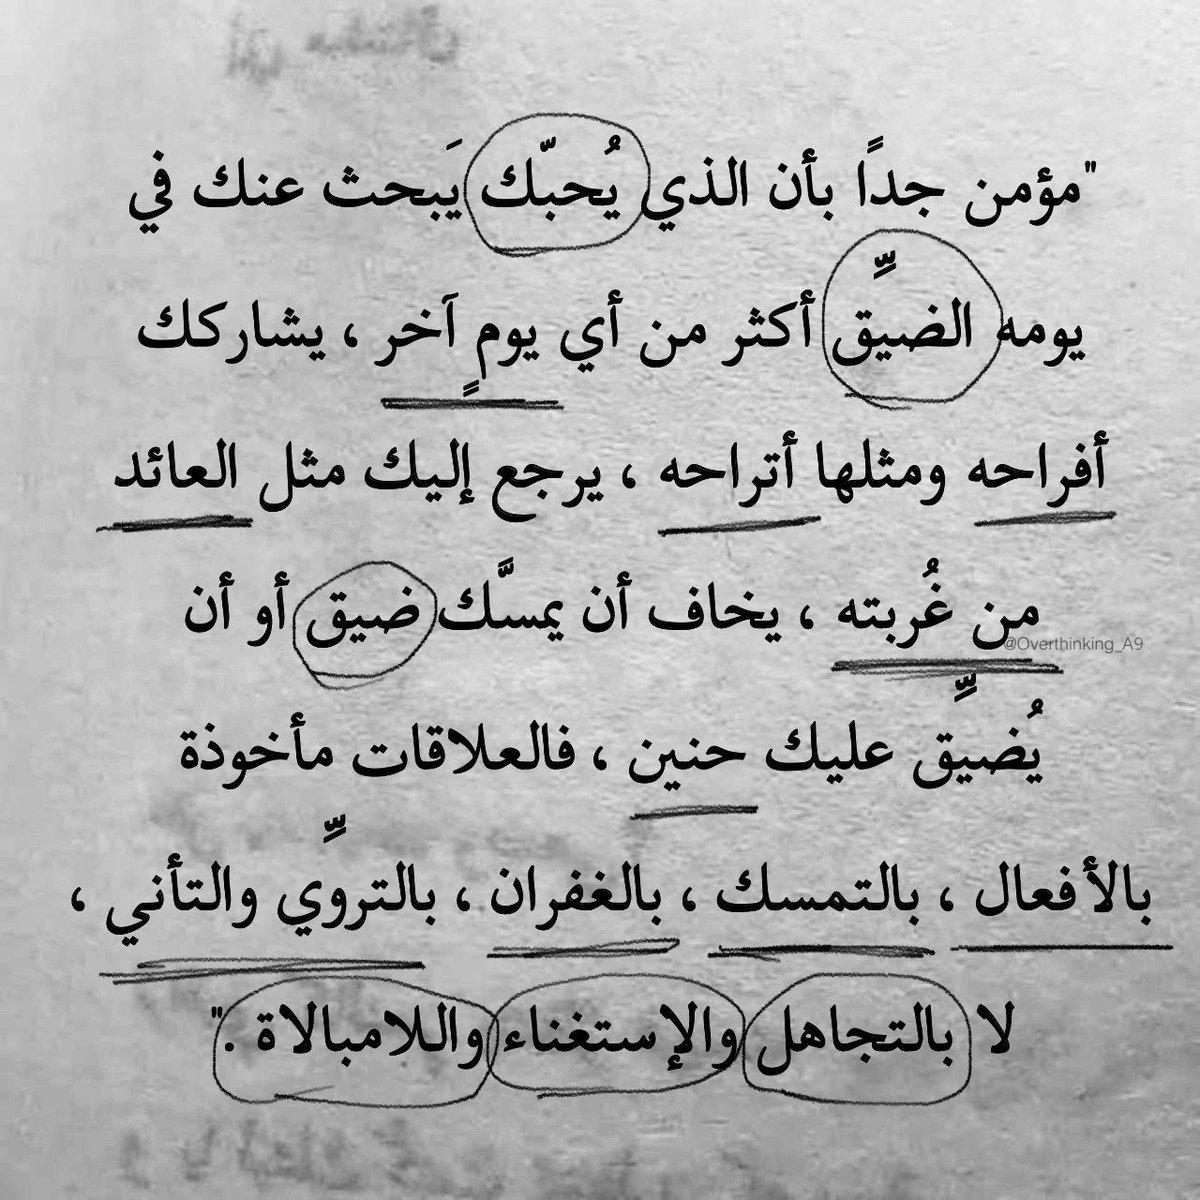 "مؤمن جدًا بأن الذي يُحبّك يَبحث عنك في
يومه الضيِّق أكثر من أي يومٍ آخر ، يشاركك
أفراحه ومثلها أتراحه ، يرجع إليك مثل العائد
من غُربته ، يخاف أن يمسَّك ضيق أو أن
@Overthinking_A9
يُضيِّق عليك حنين ، فالعلاقات مأخوذة
بالأفعال ، بالتمسك ، بالغفران ، بالتروِّي والتأني ،
لا بالتجاهل والإستغناء واللامبالاة ."